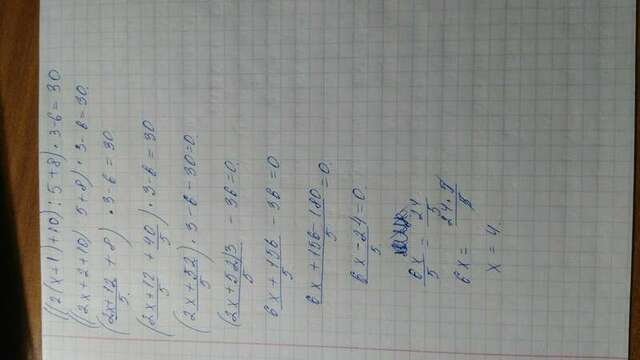 ((2(x+1)+10):5+8)·3-6=30
((2x+2+10) 5+8)·3-6=30.
(2x+12/5+8)·3-6=30
(2x+12+40/5)·3-6=30
(2x+52/5)·3-6-30=0.
(2x+52)3/5-36=0.
6x+156/5-36=0
6x+156-180/5=0.
6x-24/5=0.
6x/5=24/5
6x=24·5/5
x=4.